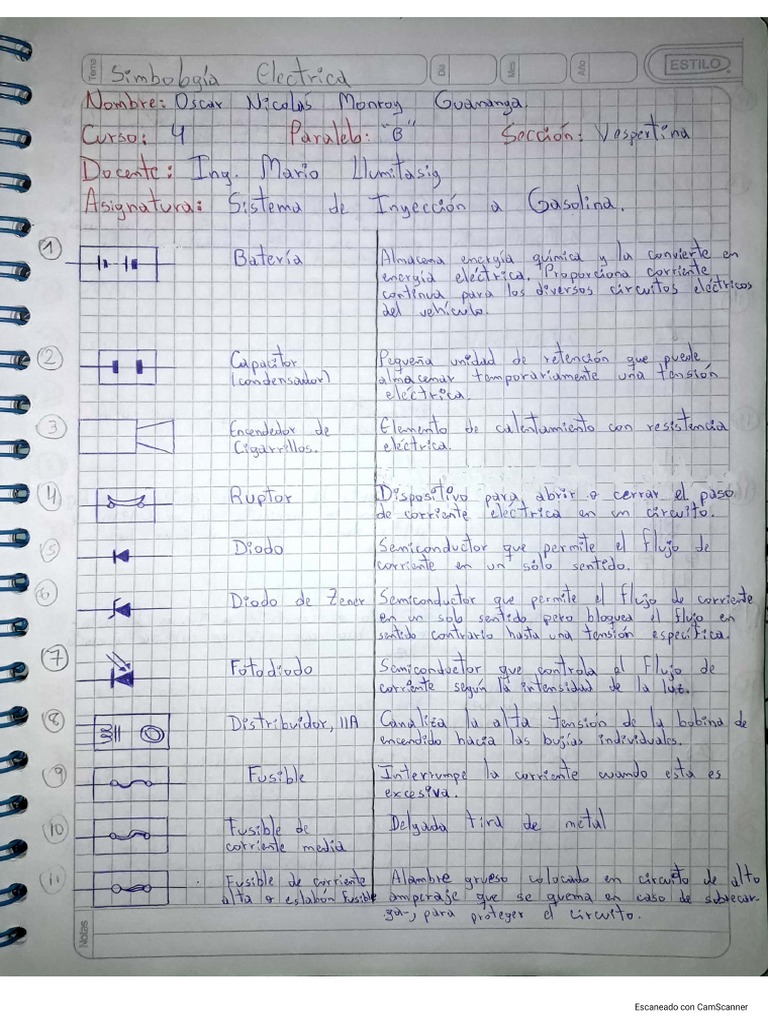 Tema
Simbología Electrica
Día
Mes
Año
ESTILO
Nombre: Oscar Nicolás Monroy Guananga.
Curso: 4 Paralelo: "B" Sección: Vespertina
Docente: Ing. Mario Llumitasig
Asignatura: Sistema de Inyección a Gasolina.
1 Batería
Almacena energía química y la convierte en
energía eléctrica. Proporciona corriente
continua para los diversos circuitos eléctricos
del vehículo.
2 Capacitor
(condensador)
Pequeña unidad de retención que puede
almacenar temporariamente una tensión
eléctrica.
3 Encendedor de
Cigarrillos.
Elemento de calentamiento con resistencia
eléctrica.
4 Ruptor
Dispositivo para abrir o cerrar el paso
de corriente eléctrica en un circuito.
5 Diodo
Semiconductor que permite el flujo de
corriente en un sólo sentido.
6 Diodo de Zener
Semiconductor que permite el flujo de corriente
en un solo sentido pero bloquea el flujo en
sentido contrario hasta una tensión específica.
7 Fotodiodo
Semiconductor que controla el Flujo de
corriente según la intensidad de la luz.
8 Distribuidor, IIA
Canaliza la alta tensión de la bobina de
encendido hacia las bujías individuales.
9 Fusible
Interrumpe la corriente cuando esta es
excesiva.
10 Fusible de
corriente media
Delgada tira de metal
11 Fusible de corriente
alta o eslabón Fusible
Alambre grueso colocado en circuito de alto
amperaje que se quema en caso de sobrecar
ga, para proteger el circuito.
Notas
Escaneado con CamScanner